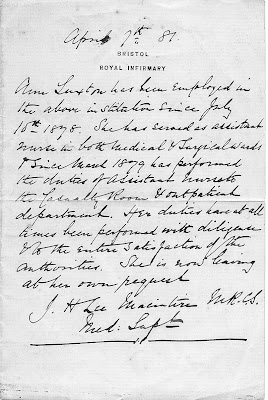 April 7th 81.
BRISTOL
ROYAL INFIRMARY
Ann Luxton has been employed in
the above institution since July
16th 1878. She has served as assistant
nurse in both Medical & Surgical wards
& Since March 1879 has performed
the duties of Assistant nurse to
the Casualty Room & outpatient
department. Her duties have at all
times been performed with diligence
& to the entire satisfaction of the
authorities. She is now leaving
at her own request
J. H Lee Macintire M.R.C.S.
Med: Supt